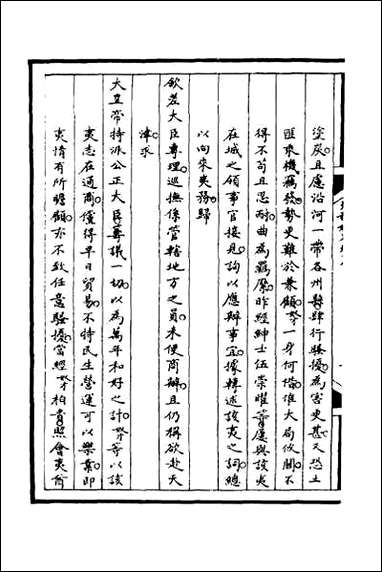 塗炭且慮沿河一帶各州縣肆行騷擾為害更甚又恐土
匪乘機竊發勢更難於兼顧奴才一身何惜惟大局攸關不
得不苟且忍耐曲為羈縻昨經紳士伍崇曜等屢與該夷
在城之領事官接見詢以應辦事宜據轉述該夷之詞總
以向來夷務歸
欽差大臣專理巡撫係管轄地方之員未便商辦且仍稱欲赴天
津求
大皇帝特派公正大臣籌議一切以為萬年和好之計奴才等以該
夷志在通商儻得早日貿易不特民生營運可以樂業即
夷情有所瞻顧亦不致任意騷擾當經奴才柏貴照會夷酋